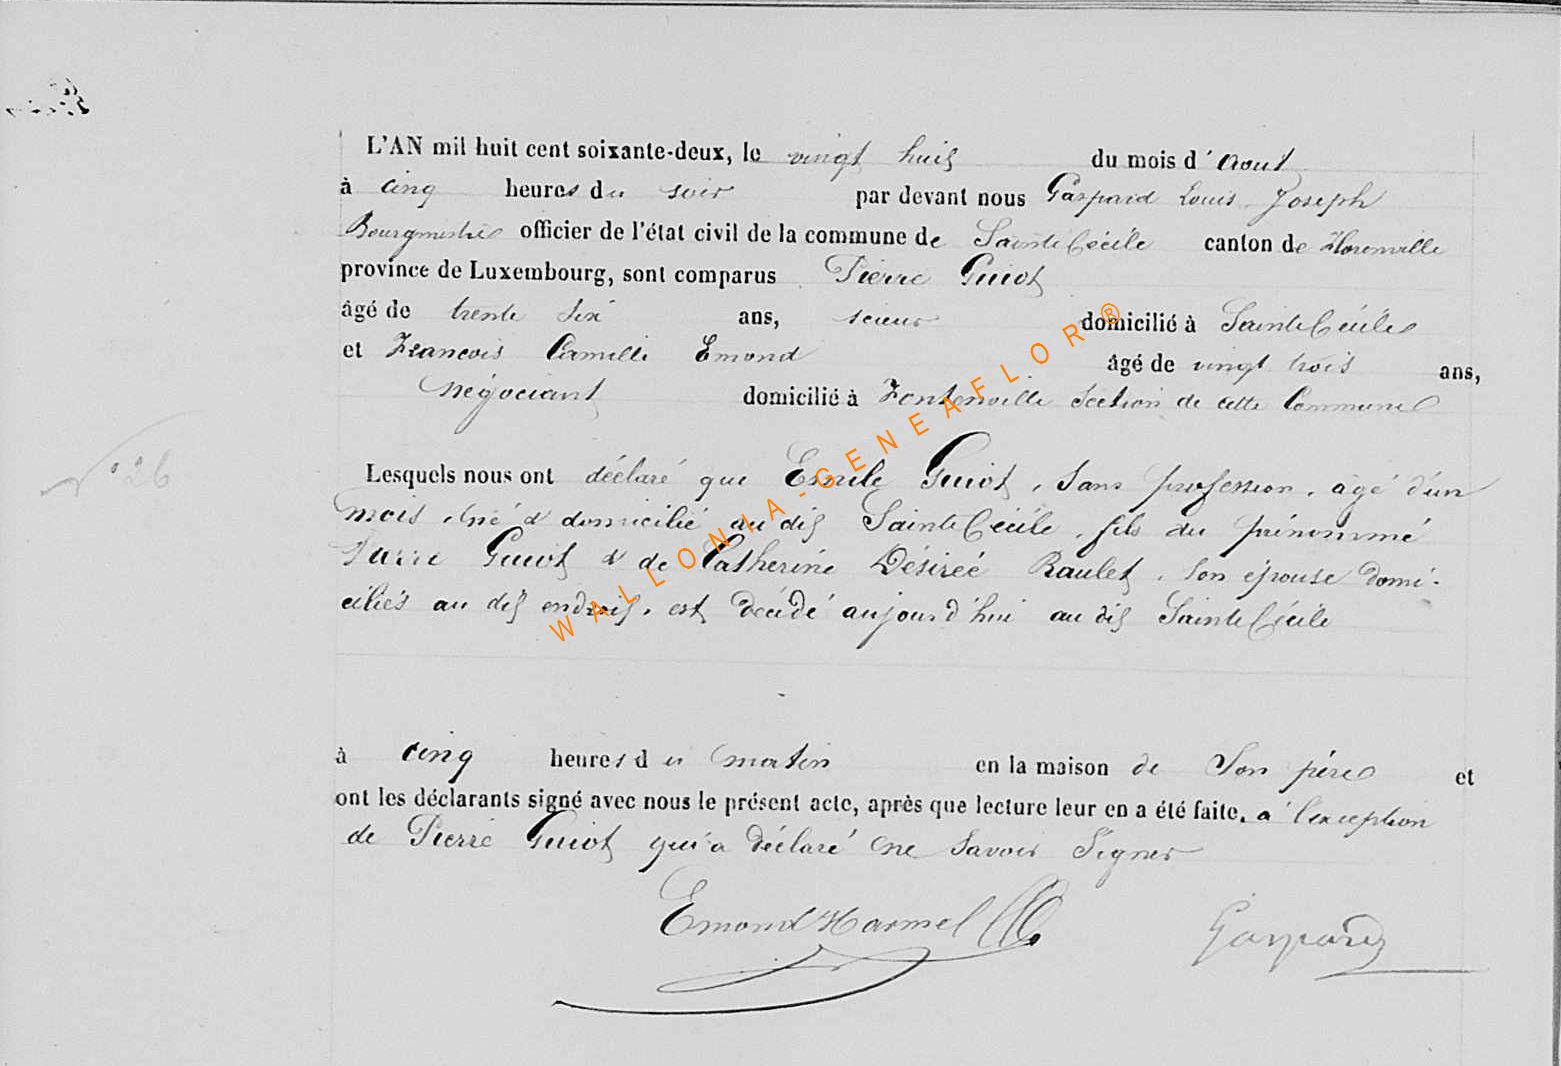 L'AN mil huit cent soixante-deux, le vingt huit du mois d'Aout
à cinq heures du soir par devant nous Gaspard Louis Joseph
Bourgmestre officier de l'état civil de la commune de Sainte Cécile canton de Florenville
province de Luxembourg, sont comparus Pierre Guiot
âgé de trente six ans, scieur domicilié à Sainte Cécile
et François Camille Emond âgé de vingt trois ans,
négociant domicilié à Fontenoille Section de cette Commune
N° 26
Lesquels nous ont déclaré que Emile Guiot, Sans profession, agé d'un
mois, né & domicilié au dit Sainte Cécile, fils du prénommé
Pierre Guiot & de Catherine Désireé Raulet, Son épouse domi-
ciliés au dit endroit, est décédé aujourd'hui au dit Sainte Cécile
à cinq heures du matin en la maison de Son père et
ont les déclarants signé avec nous le présent acte, après que lecture leur en a été faite. à l'exception
de Pierre Guiot qui a déclaré ne Savoir Signer
Emond Harmel Gaspard
WALLONIA-GENEAFLOR®